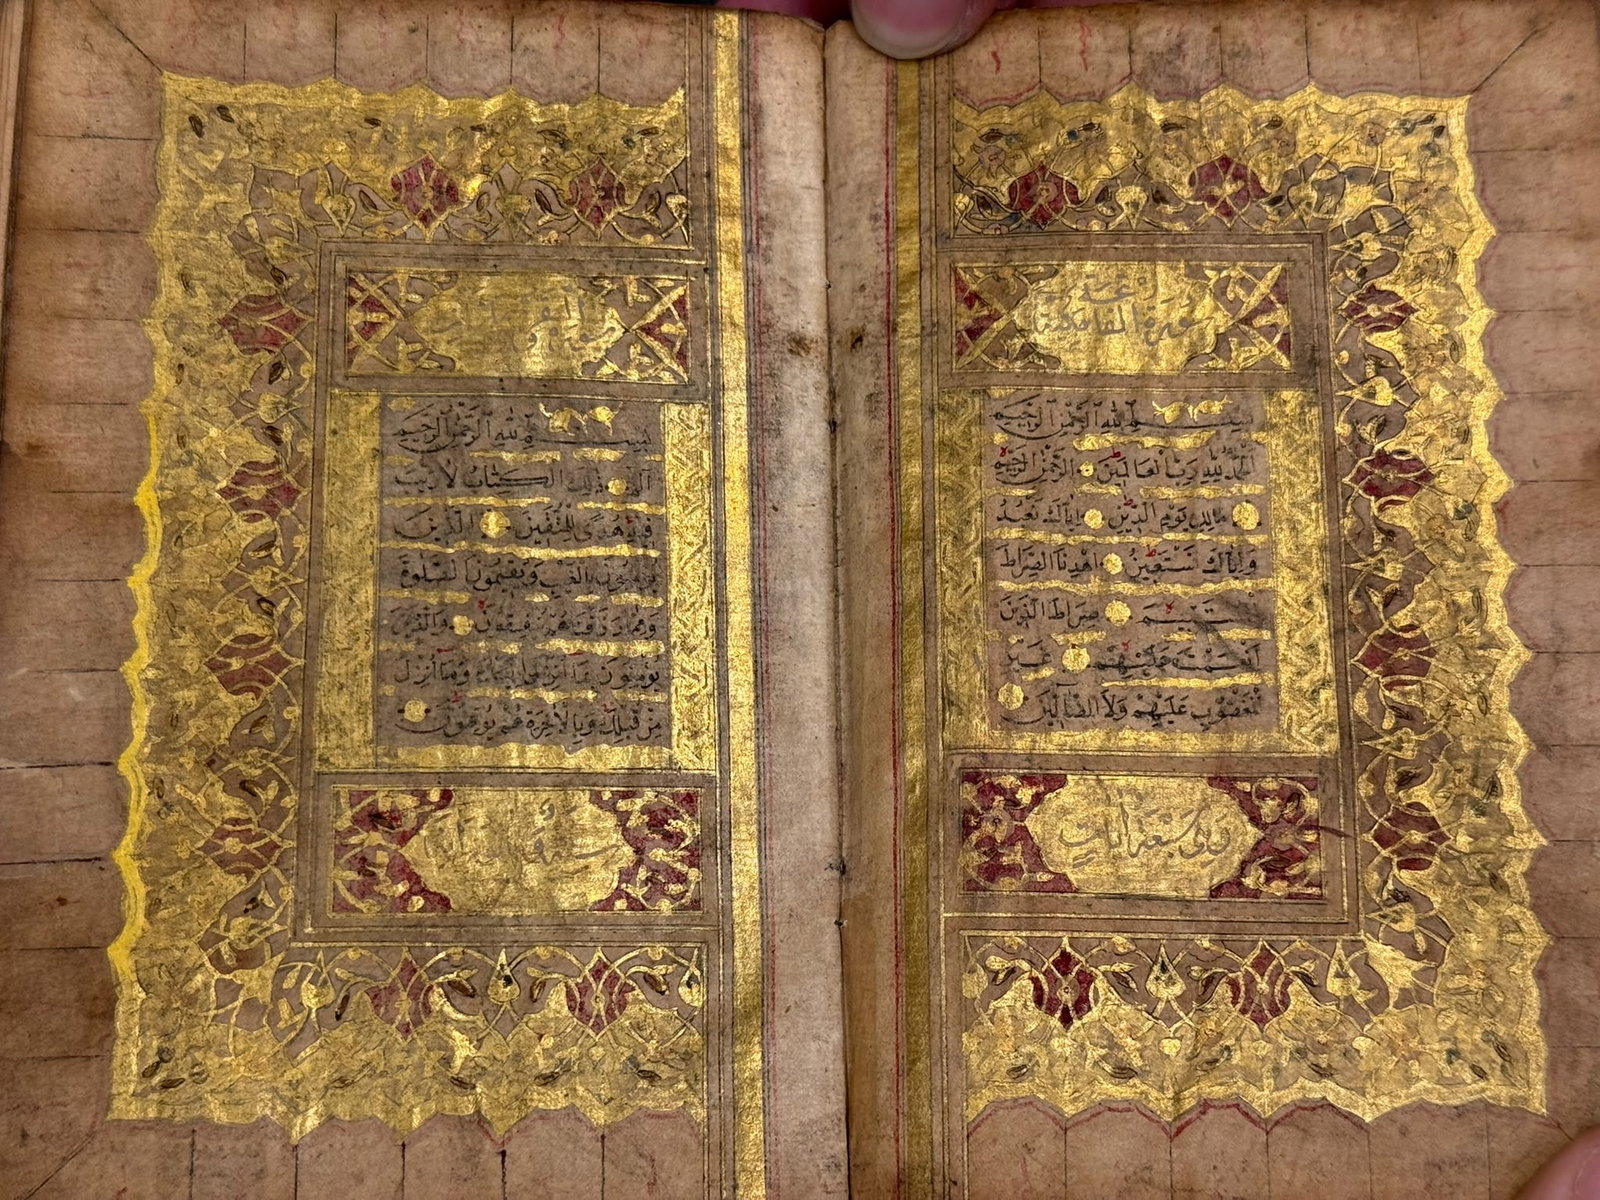 سورة الفاتحة
بسم الله الرحمن الرحيم
الحمد لله رب العالمين الرحمن الرحيم
مالك يوم الدين اياك نعبد
وَاِيَّاكَ نَسْتَعِينُ اهْدِنَا الصِّرَاطَ
صِرَاطَ الَّذِينَ
اَنْعَمْتَ عَلَيْهِمْ غَيْرِ
الْمَغْضُوبِ عَلَيْهِمْ وَلَا الضَّالِّينَ
وهي سبعة آيات
بسم الله الرحمن الرحيم
الم ذلك الكتاب لا ريب
فيه هدى للمتقين الذين
يؤمنون بالغيب ويقيمون الصلوة
ومما رزقناهم ينفقون والذين
يؤمنون بما انزل اليك وما انزل
من قبلك وبالآخرة هم يوقنون